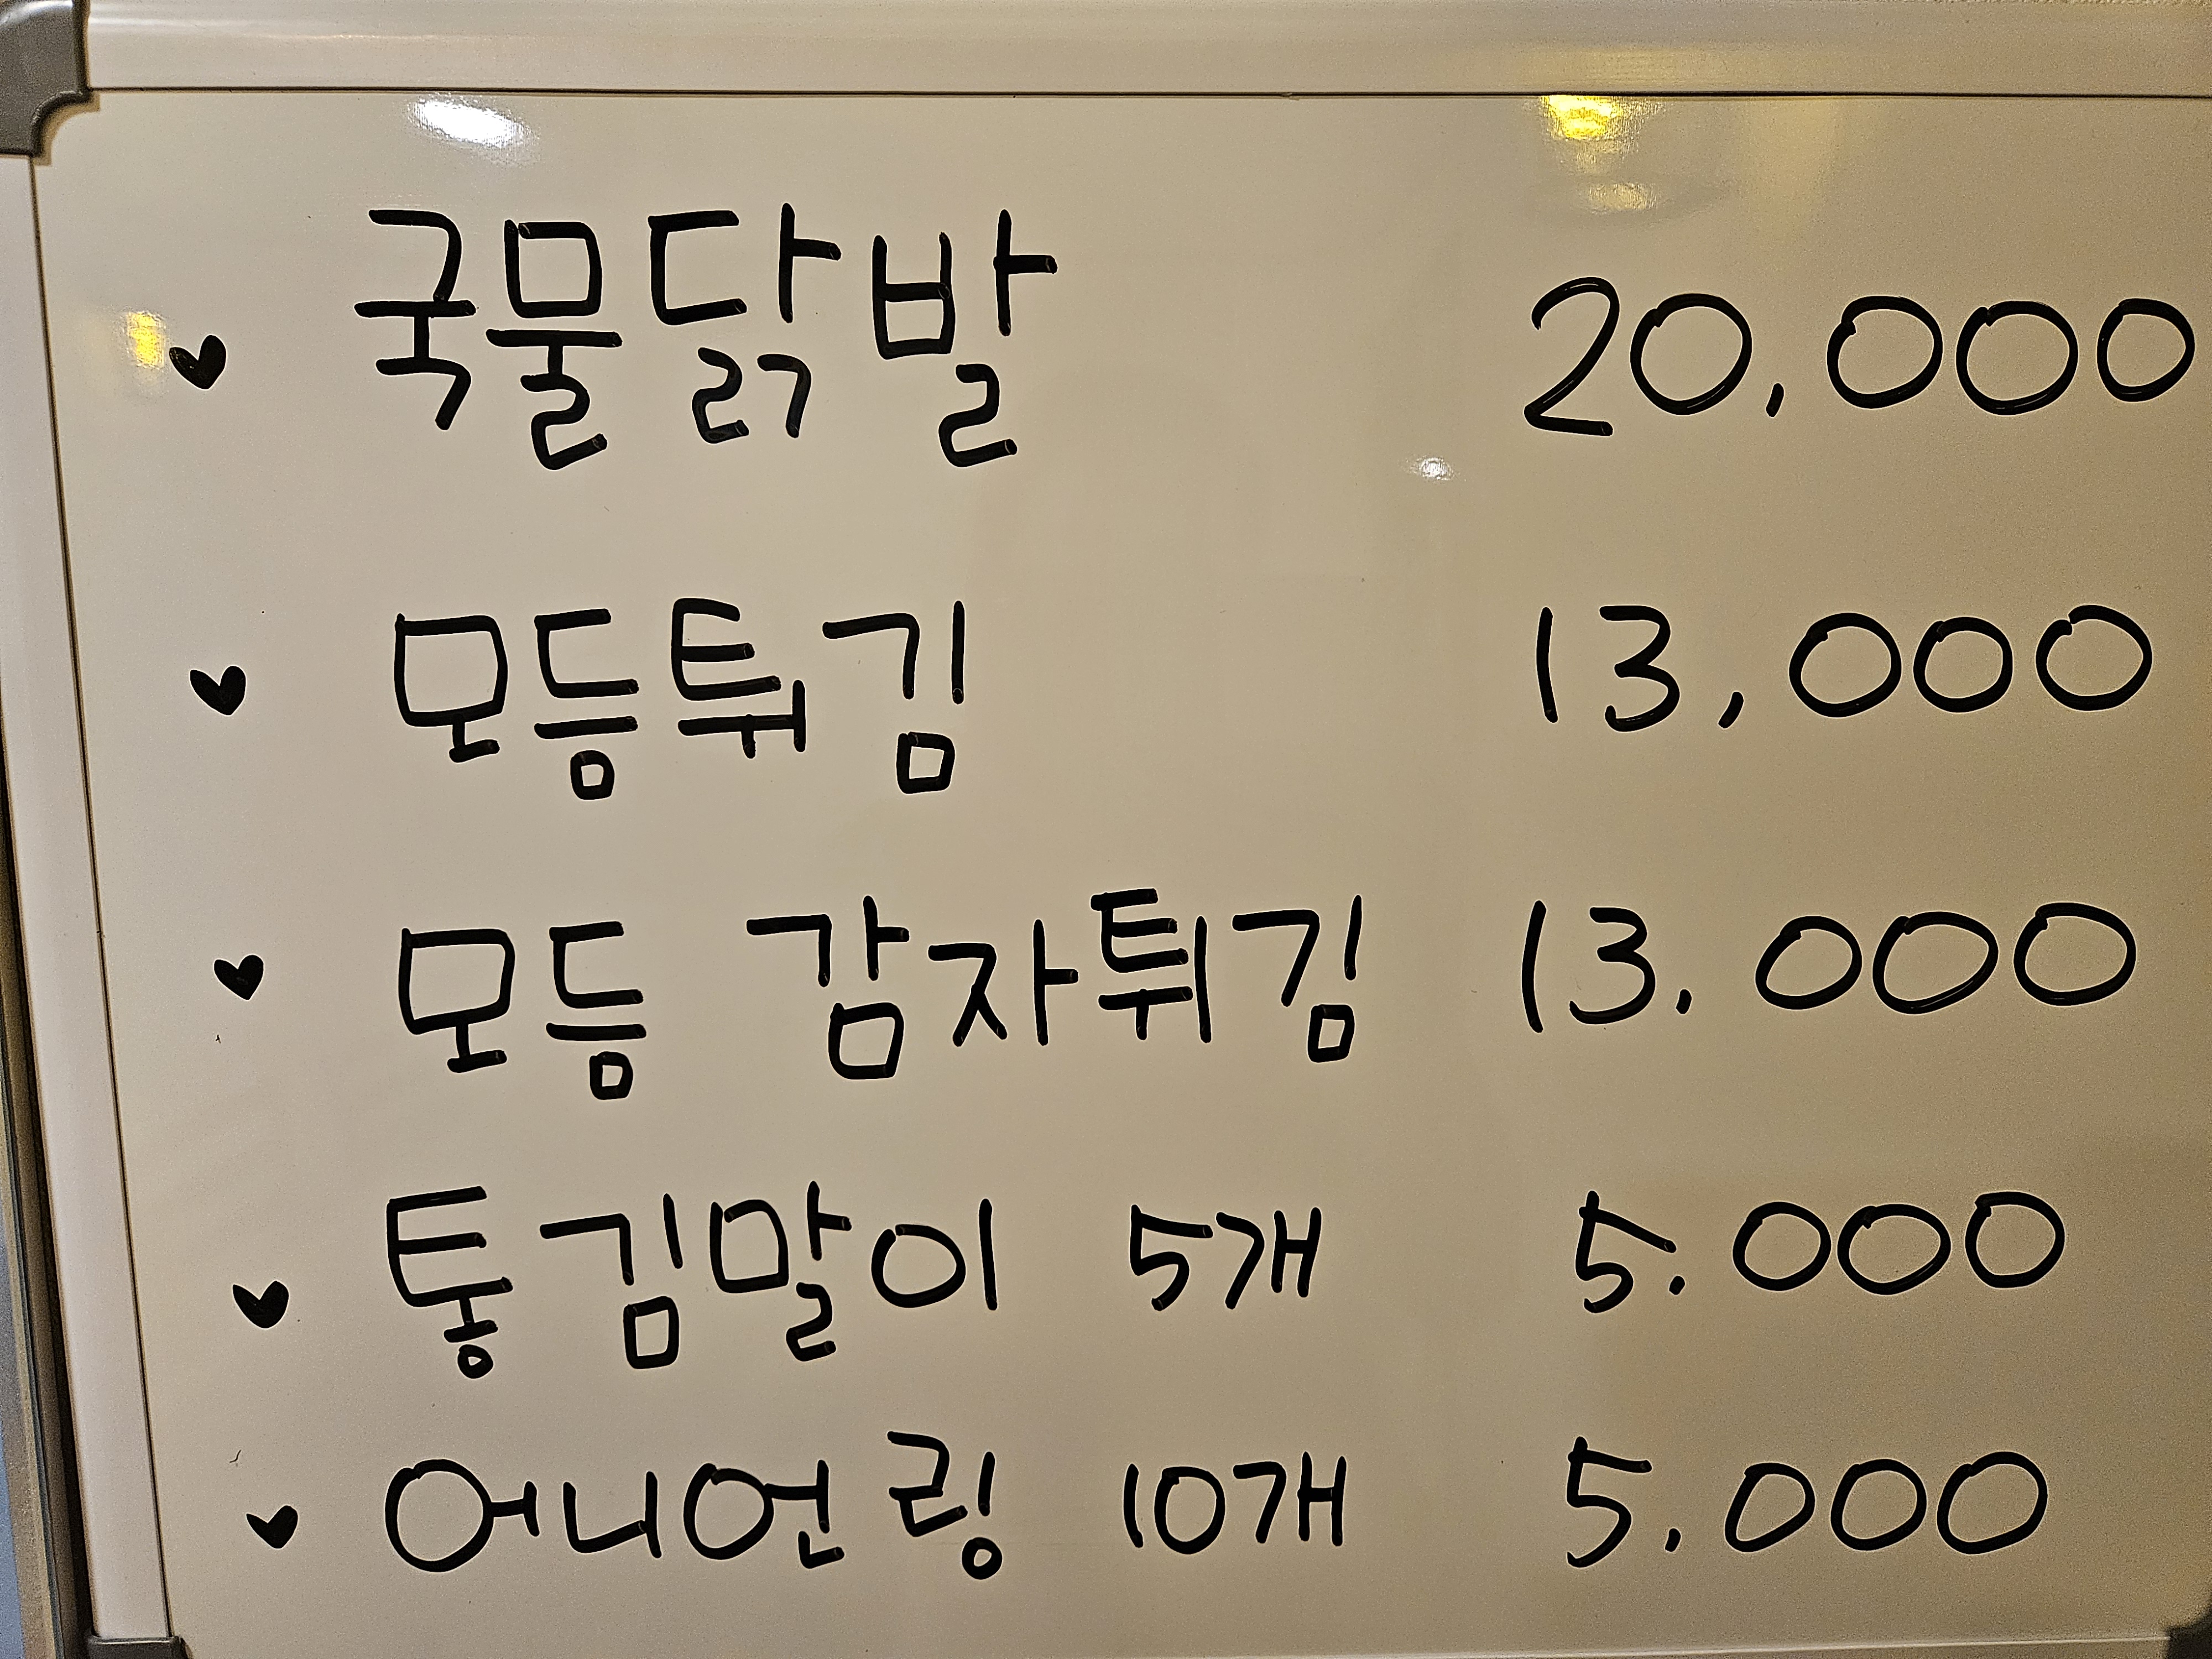 ♥ 국물닭발 20,000
♥ 모등튀김 13,000
♥ 모등 감자튀김 13.000
♥ 통김말이 5개 5.000
♥ 어니언링 10개 5.000